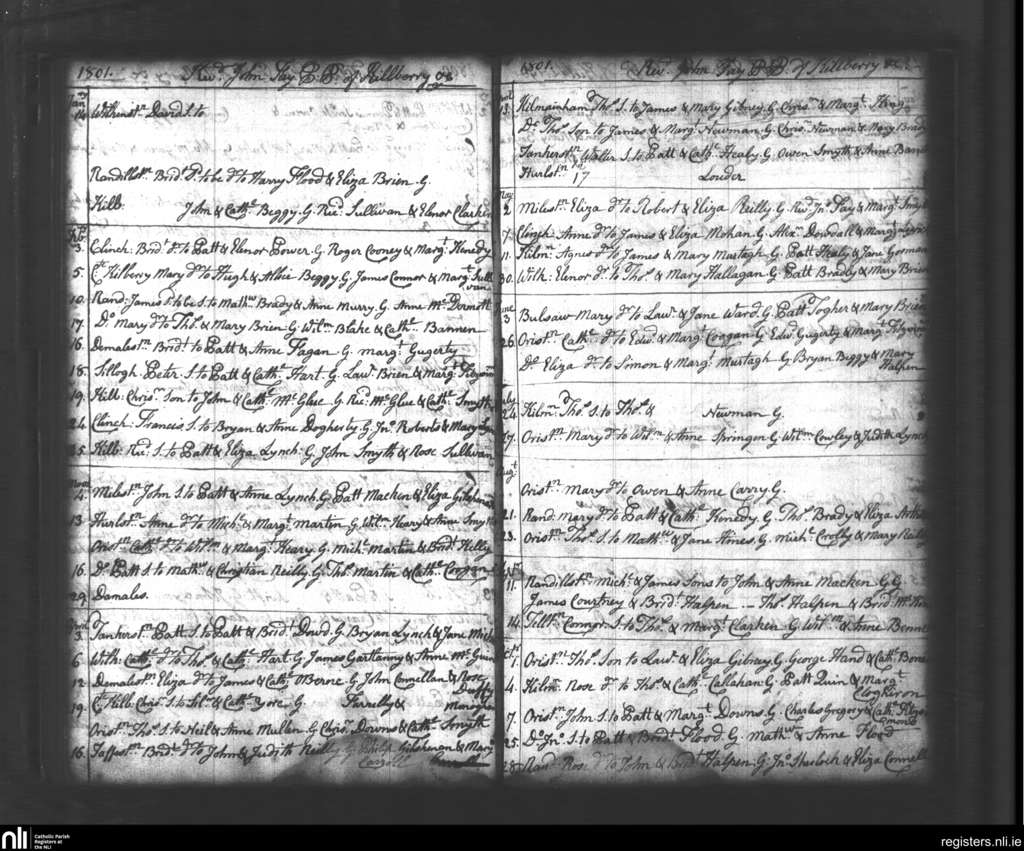 1801. Revd. John Fay P.P. of Killberry &c
Jany
14 Wilkinstn. David S. to
Randillstn. Bridt. to be dr. to Harry Flood & Eliza Brien G.
Killb: John & Cathe. Beggy G. Ricd. Sullivan & Elenor Clarken
Feb
3. Clinch: Bridt. dr. to Patt & Elenor Power G. Roger Cooney & Margt. Kenedy
5. Ct. Kilberry Mary dr. to Hugh & Albie Beggy G. James Connor & Margt. Sullivan
10. Rand: James S. to be S. to Mathw. Brady & Anne Murry G. Anne McDermott
17. Do. Mary dr. to Thos. & Mary Brien G. Wilm. Blake & Cathe. Bannen
16. Demalestn. Bridt. to Patt & Anne Fagan G. Margt. Gugerty
18. Sillogh Peter S. to Patt & Cathe. Hart G. Lawr. Brien & Margt.
19. Killb: Chrisr. Son to John & Cathe. McGlue G. Ric: McGlue & Cathe. Smyth
24. Clinch: Francis S. to Bryan & Anne Dogherty G. Jno. Roberts & Mary
25. Killb: Ricd. S. to Patt & Eliza Lynch G. John Smyth & Rose Sullivan
March
4. Milestn. John S. to Patt & Anne Lynch G. Patt Macken & Eliza Gilshenan
13. Hurlstn. Anne dr. to Michl. & Margt. Martin G. Wilm. Heary & Anne Smyth
Oristn. Cathe. dr. to Wilm. & Margt. Heary G. Michl. Martin & Bridt. Reilly
16. Do. Patt S. to Mathw. & Christian Reilly G. Thos. Martin & Cathe. Coogan
29. Damales.
April
3. Tankerstn. Patt S. to Patt & Bridt. Dowd G. Bryan Lynch & Jane
6. Wilk: Cathe. dr. to Thos. & Cathe. Hart G. James Gartlanny & Anne McGuin
12. Demalestn. Eliza dr. to James & Cathe. OBerne G. John Connellan & Rose Duffy
19. Ct. Killb. Chrisr. S. to Silv. & Cathe. Yore G. Farrelly &
Oristn. Thos. S. to Neil & Anne Mullen G. Chrisr. Downs & Cathe. Smyth
16. Taffestn. Bridt. dr. to John & Judith Reilly G. Philip Gilshenan & Mary Carroll
1801. Revd. John Fay P.P. of Killberry &c
13. Kilmainham Thos. S. to James & Mary Gibney G. Chrisr. & Margt.
Do. Thos. Son to James & Margt. Newman G. Chrisr. Newman & Mary
Tankerstn. Walter S. to Patt & Cathe. Healy G. Owen Smyth & Anne
Hurlstn. 17 Louder
May
2 Milestn. Eliza dr. to Robert & Eliza Reilly G. Revd. Jno. Fay & Margt. Smyth
7. Clinch: Anne dr. to James & Eliza Mohan G. Alexr. Dowdall & Margt.
11. Kilm: Agnes dr. to James & Mary Murtagh G. Patt Healy & Jane Gorman
30. Wilk: Elenor dr. to Thos. & Mary Hallagan G. Patt Bradly & Mary Brien
June
3 Bulsaw Mary dr. to Lawr. & Jane Ward G. Patt Togher & Mary Brien
26. Oristn. Cathe. dr. to Edwd. & Margt. Coogan G. Edwd. Gugerty & Margt.
Do. Eliza dr. to Simon & Margt. Murtagh G. Bryan Beggy & Mary Halpen
July
24 Kilm: Thos. S. to Thos. & Newman G.
17. Oristn. Mary dr. to Wilm. & Anne Springen G. Wilm. Cowley & Judith Lynch
Augt.
Oristn. Mary dr. to Owen & Anne Carry G.
21. Rand: Mary dr. to Patt & Cathe. Kenedy G. Thos. Brady & Eliza
23. Oristn. Thos. S. to Mathw. & Jane Hines G. Michl. Crolly & Mary Reilly
Sept.
11. Randillstn. Michl. & James Sons to John & Anne Macken G. G.
James Courtney & Bridt. Halpen — Thos. Halpen & Bridt.
14. Tilltn. Connor S. to Thos. & Margt. Clarken G. Wilm. & Anne
Oct.
1. Oristn. Thos. Son to Lawr. & Eliza Gibney G. George Hand & Cath:
4. Kilm: Rose dr. to Thos. & Cathe. Callahan G. Patt Quin & Margt.
7. Oristn. John S. to Patt & Margt. Downs G. Charles Gregory & Cath:
25. Do. Jno. S. to Patt & Bridt. Flood G. Mathw. & Anne Flood
28. Rand: Rose dr. to John & Bridt. Halpen G. Jno. Sherloch & Eliza
nli Catholic Parish Registers at the NLI
registers.nli.ie